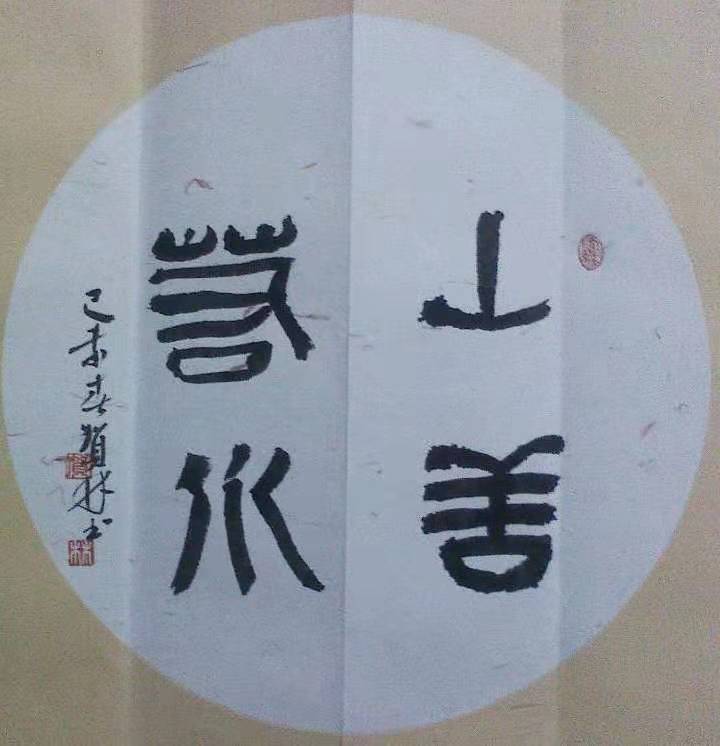 上善
若水
己未春賀林书